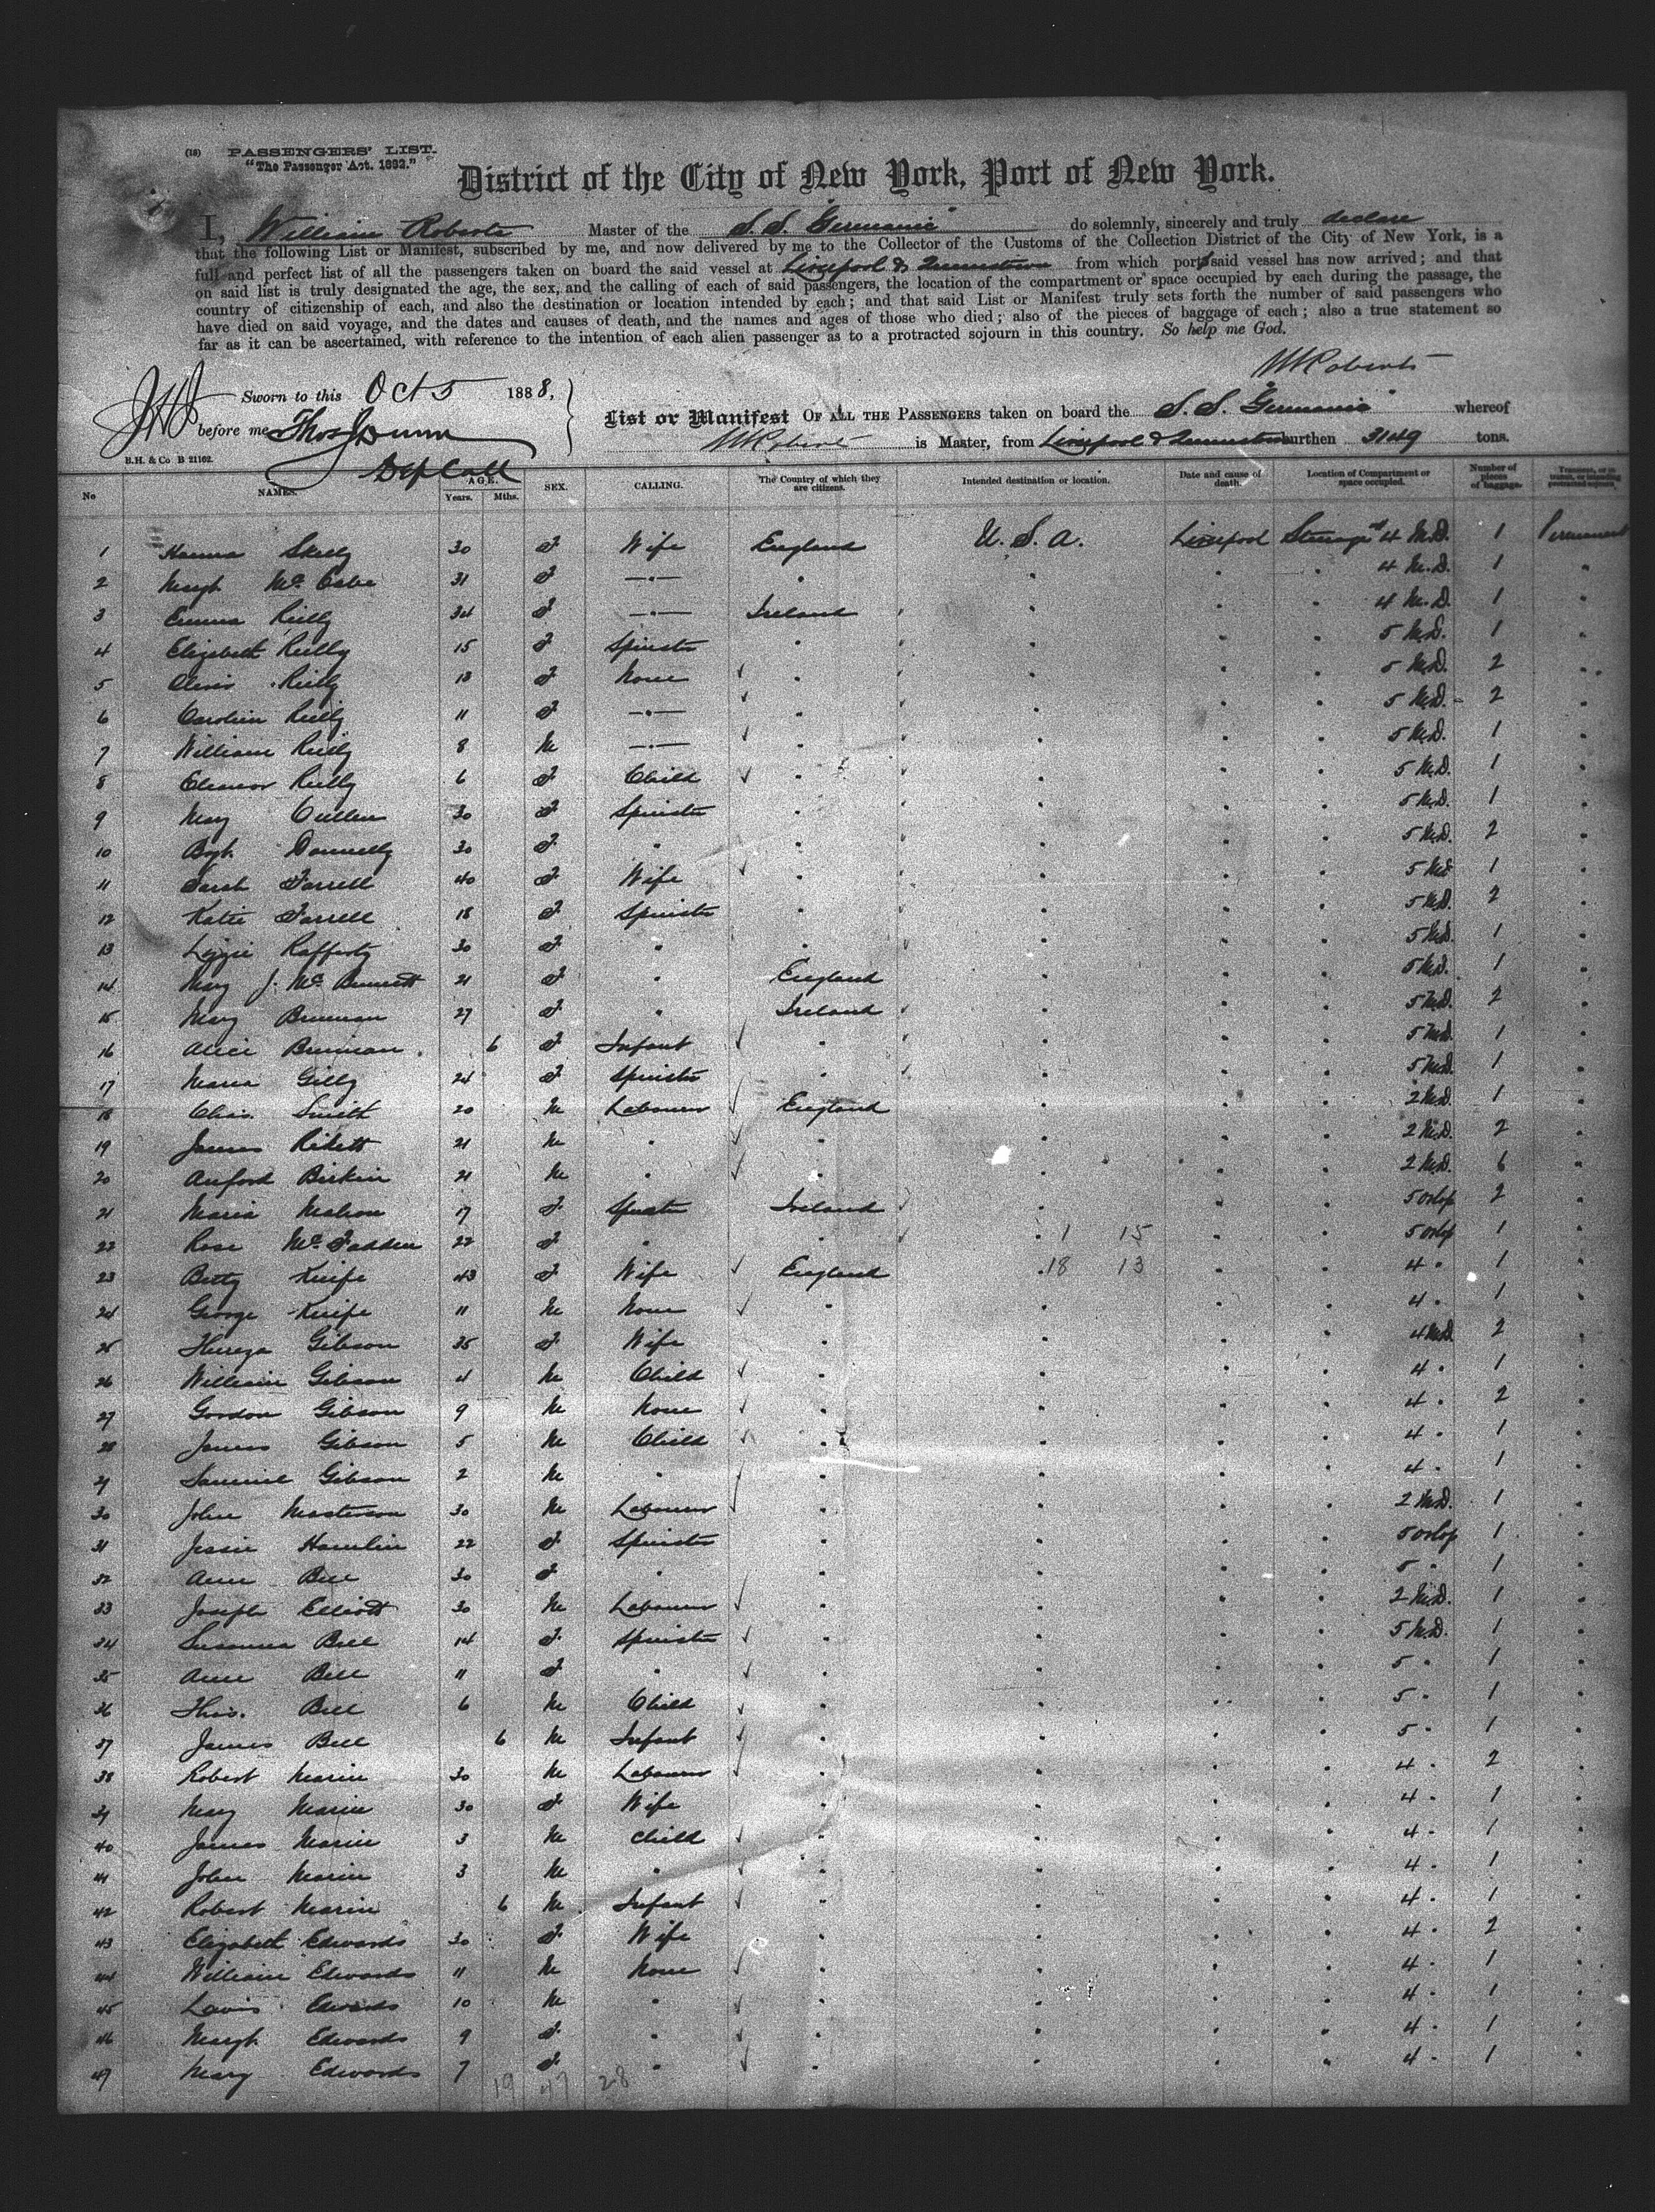 (10) PASSENGERS' LIST.
"The Passenger Act. 1882."
District of the City of New York, Port of New York.
I, William Roberts Master of the S.S. "Germanic" do solemnly, sincerely and truly declare
that the following List or Manifest, subscribed by me, and now delivered by me to the Collector of the Customs of the Collection District of the City of New York, is a
full and perfect list of all the passengers taken on board the said vessel at Liverpool & Queenstown from which port said vessel has now arrived; and that
on said list is truly designated the age, the sex, and the calling of each of said passengers, the location of the compartment or space occupied by each during the passage, the
country of citizenship of each, and also the destination or location intended by each; and that said List or Manifest truly sets forth the number of said passengers who
have died on said voyage, and the dates and causes of death, and the names and ages of those who died; also of the pieces of baggage of each; also a true statement so
far as it can be ascertained, with reference to the intention of each alien passenger as to a protracted sojourn in this country. So help me God.
WRoberts
Sworn to this Oct 5 1888,
before me Thos Dunn
Dep Coll
B.H. & Co B 21162.
List or Manifest OF ALL THE PASSENGERS taken on board the S.S. "Germanic" whereof
WRoberts is Master, from Liverpool & Queenstown burthen 3149 tons.
No NAMES. AGE. Years. Mths. SEX. CALLING. The Country of which they are citizens. Intended destination or location. Date and cause of death. Location of Compartment or space occupied. Number of pieces of baggage. Transient, or in transit, or intending protracted sojourn.
1 Hanna Skelly 30 F Wife England U.S.A. Liverpool Steerage 4 M.D. 1 Permanent
2 Margt McCabe 31 F —"— " " " " 4 M.D. 1 "
3 Emma Reilly 34 F —"— Ireland " " " 4 M.D. 1 "
4 Elizabeth Reilly 15 F Spinster " " " " 5 M.D. 1 "
5 Reilly 13 F None " " " " 5 M.D. 2 "
6 Carolin Reilly 11 F —"— " " " " 5 M.D. 2 "
7 William Reilly 8 M —"— " " " " 5 M.D. 1 "
8 Eleanor Reilly 6 F Child " " " " 5 M.D. 1 "
9 Mary Cullen 30 F Spinster " " " " 5 M.D. 1 "
10 Bgt. Donnelly 30 F " " " " " 5 M.D. 2 "
11 Sarah Farrell 40 F Wife " " " " 5 M.D. 1 "
12 Katie Farrell 18 F Spinster " " " " 5 M.D. 2 "
13 Lizzie Rafferty 30 F " " " " " 5 M.D. 1 "
14 Mary J. Mc 21 F " England " " " 5 M.D. 1 "
15 Mary Brennan 27 F " Ireland " " " 5 M.D. 2 "
16 Alice Brennan 6 F Infant " " " " 5 M.D. 1 "
17 Maria Gilly 24 F Spinster " " " " 5 M.D. 1 "
18 Chas. Smith 20 M Labourer England " " " 2 M.D. 1 "
19 James Rikett 21 M " " " " " 2 M.D. 2 "
20 Birkin 21 M " " " " " 2 M.D. 6 "
21 Maria Mahon 17 F Spinster Ireland " " " 5 Orlop 2 "
22 Rose McFadden 22 F " " " 1 15 " " 5 Orlop 1 "
23 Betty Knife 43 F Wife England " 18 13 " " 4 " 1 "
24 George Knife 11 M None " " " " 4 " 1 "
25 Gibson 35 F Wife " " " " 4 M.D. 2 "
26 William Gibson 4 M Child " " " " 4 " 1 "
27 Gordon Gibson 9 M None " " " " 4 " 2 "
28 James Gibson 5 M Child " " " " 4 " 1 "
29 Samuel Gibson 2 M " " " " " 4 " 1 "
30 John Masterson 30 M Labourer " " " " 2 M.D. 1 "
31 Jessie Hamlin 22 F Spinster " " " " 5 Orlop 1 "
32 Ann Bell 30 F " " " " " 5 " 1 "
33 Joseph Elliott 30 M Labourer " " " " 2 M.D. 1 "
34 Susanna Bell 14 F Spinster " " " " 5 M.D. 1 "
35 Ann Bell 11 F " " " " " 5 " 1 "
36 Thos. Bell 6 M Child " " " " 5 " 1 "
37 James Bell 6 M Infant " " " " 5 " 1 "
38 Robert Marin 30 M Labourer " " " " 4 " 2 "
39 Mary Marin 30 F Wife " " " " 4 " 1 "
40 James Marin 3 M Child " " " " 4 " 1 "
41 John Marin 3 M " " " " " 4 " 1 "
42 Robert Marin 6 M Infant " " " " 4 " 1 "
43 Elizabeth Edwards 30 F Wife " " " " 4 " 2 "
44 William Edwards 11 M None " " " " 4 " 1 "
45 Edwards 10 M " " " " " 4 " 1 "
46 Margt. Edwards 9 F " " " " " 4 " 1 "
47 Mary Edwards 7 F " " " " " 4 " 1 "
19 47 28